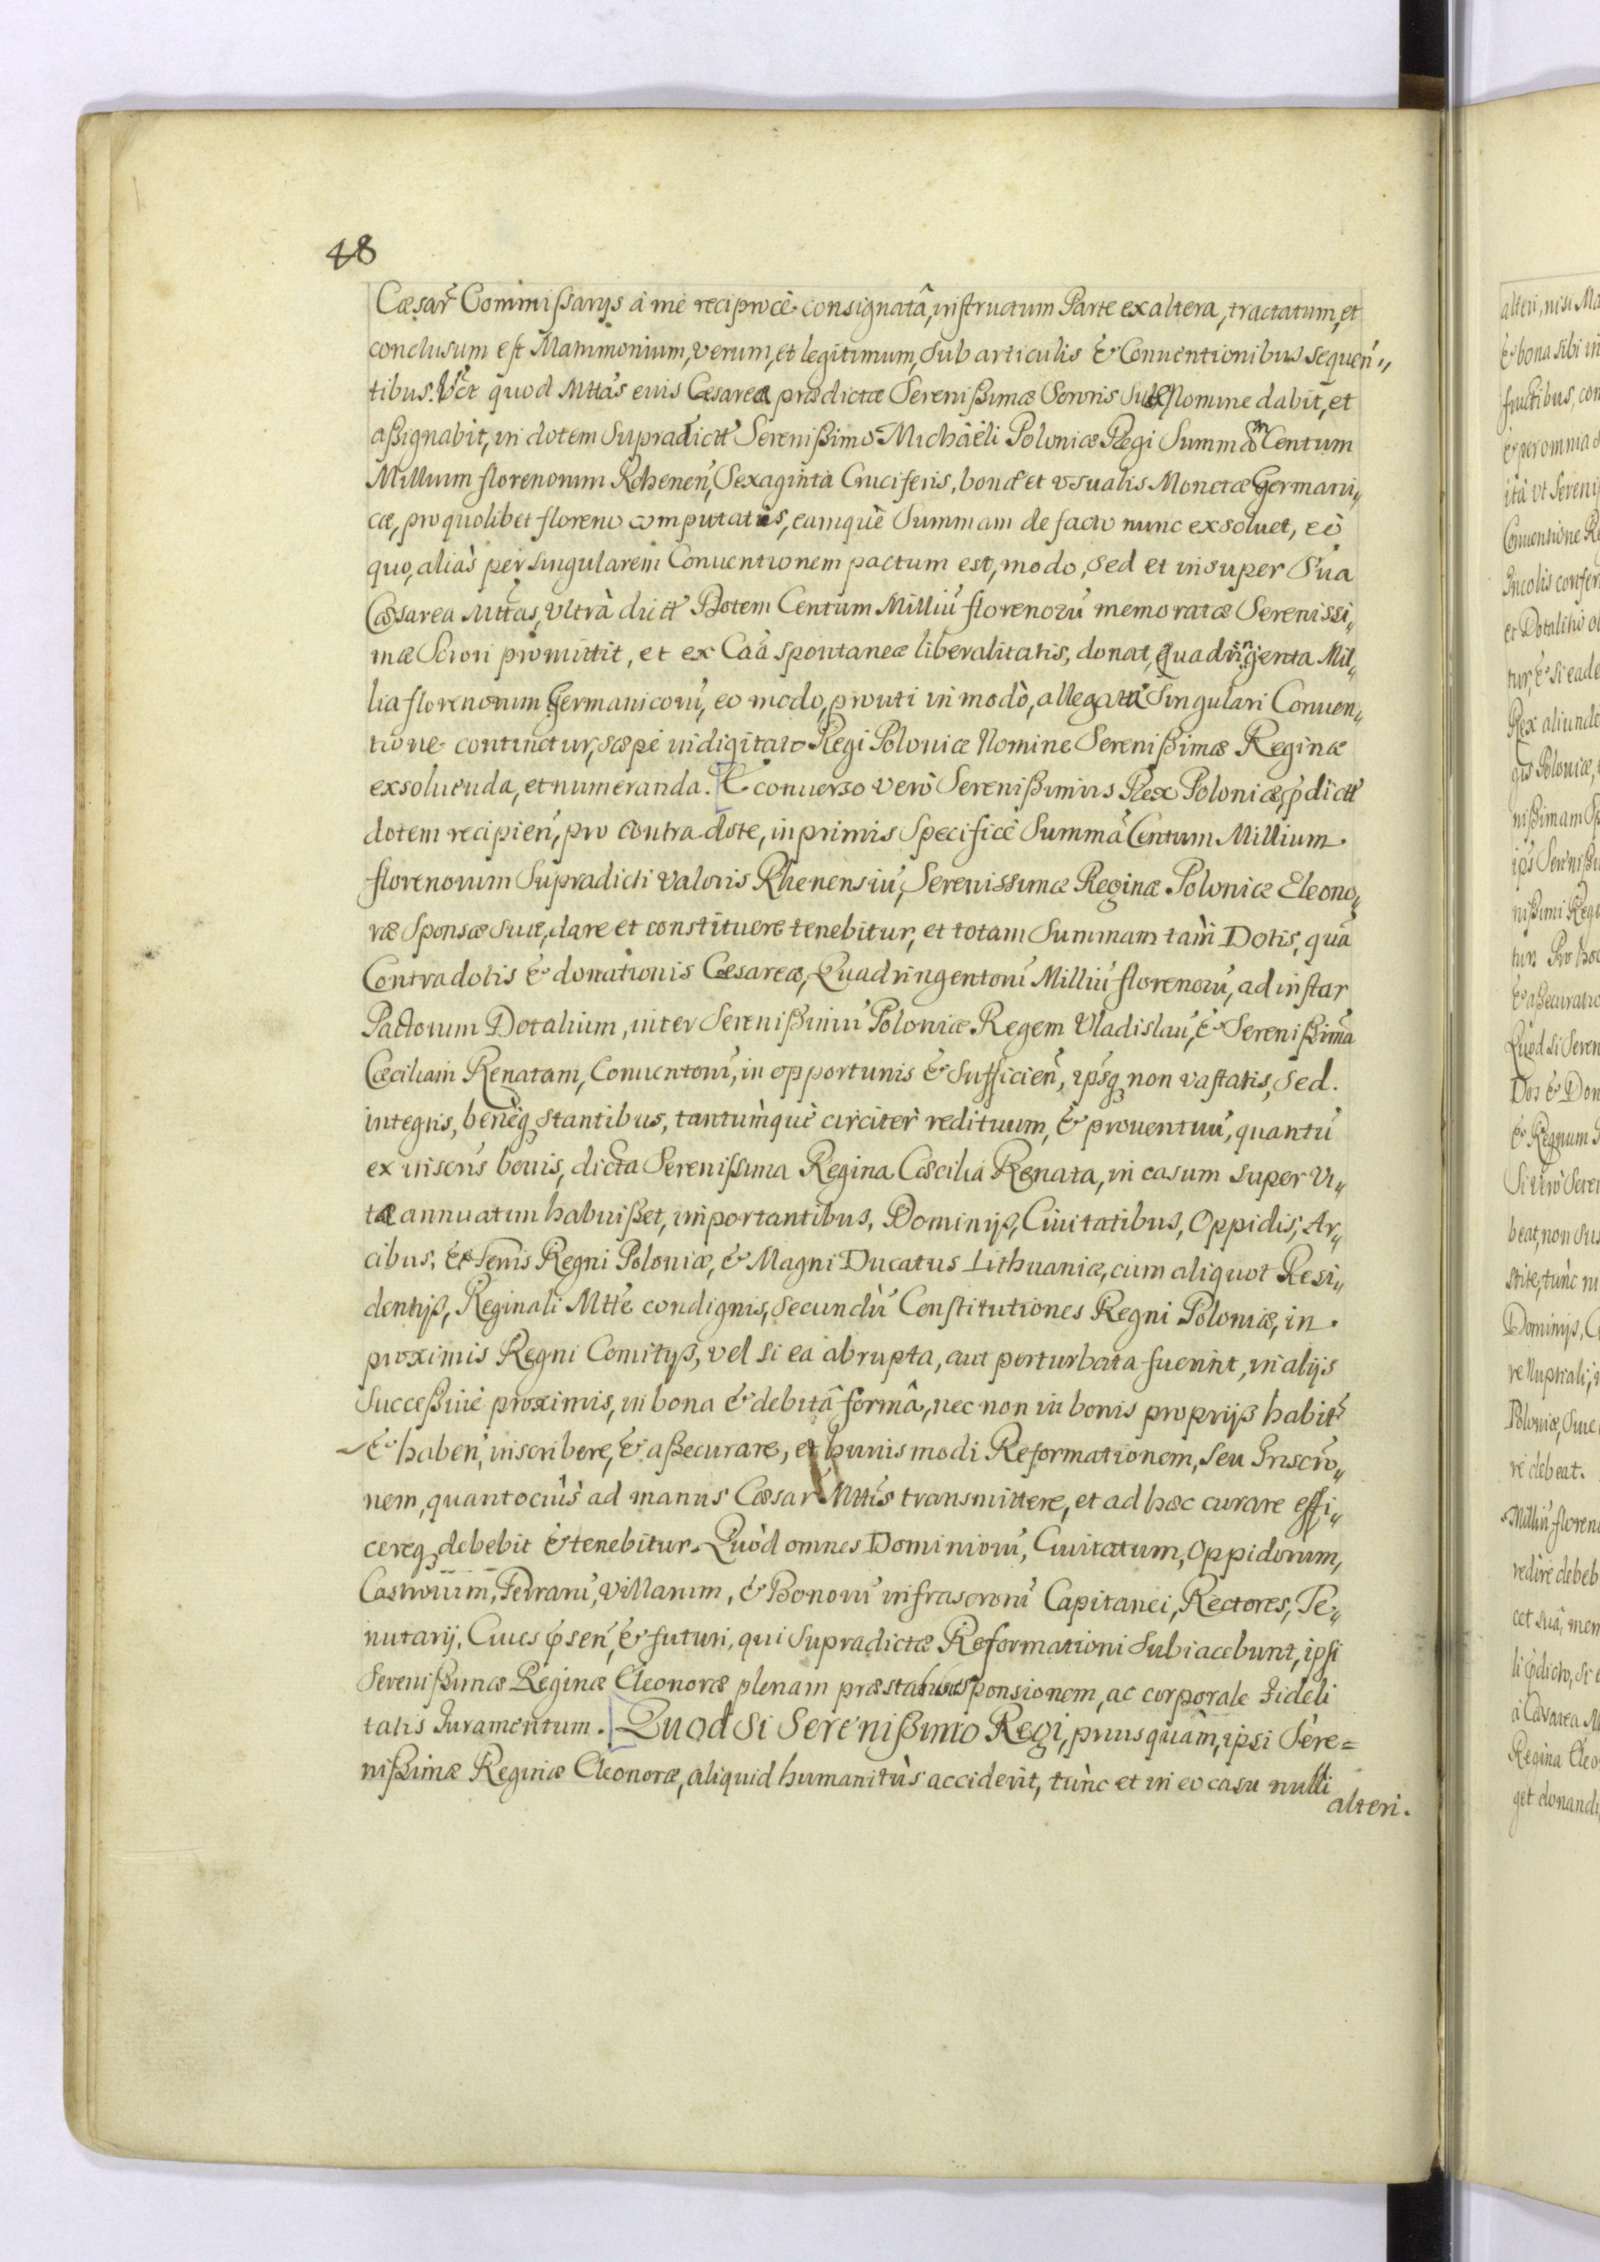 48
Cæsar̃ Commißarijs à me reciprocè consignatâ, instructum Parte ex altera, tractatum, et
conclusum est Matrimonium, verum, et legitimum, sub articulis & Conuentionibus sequen„
tibus. Vt quod Mttas eius Cæsarea prædictæ Serenißimæ Sororis suæ Nomine dabit, et
aßignabit, in dotem supradictt Serenißimo Michäeli Poloniæ Regi Summam Centum
Millium florenorum Rhenen̄, Sexaginta Cruciferis, bonæ et vsualis Monetæ Germani„
cæ, pro quolibet floreno computatis, eamquè Summam de facto nunc exsoluet, eò
quo, aliàs per singularem Conuentionem pactum est, modo, sed et insuper Sua
Cæsarea Mttas, vltrà dictt Dotem Centum Milliū florenorū memoratæ Serenissi„
mæ Sorori promittit, et ex Cãa spontaneæ liberalitatis, donat, Quadringenta Mil„
lia florenorum Germanicorū, eo modo, prouti in modò, allegata Singulari Conuen„
tione continetur, sæpè indigitato Regi Poloniæ Nomine Serenißimæ Reginæ
exsoluenda, et numeranda. E conuerso verò Serenißimus Rex Poloniæ, pdictt
dotem recipien̄, pro contra dote, inprimis Specificè Summã Centum Millium
florenorum Supradicti valoris Rhenensiū, Serenissimæ Reginæ Poloniæ Eleono„
ræ Sponsæ suæ, dare et constituere tenebitur, et totam Summam tam Dotis, quā
Contradotis & donationis Cæsareæ, Quadringentorū Milliū florenorū, ad instar
Pactorum Dotalium, inter Serenißimū Poloniæ Regem Vladislaū, & Serenißimā
Cæciliam Renatam, Conuentorū, in opportunis & sufficien̄, ipsq́ non vastatis, sed
integris, beneq́ stantibus, tantumquè circiter redituum, & prouentuū, quantū
ex inscris bonis, dicta Serenissima Regina Cæcilia Renata, in casum super vi„
tæ annuatim habuißet, importantibus, Dominijs, Ciuitatibus, Oppidis, Ar„
cibus, & Terris Regni Poloniæ, & Magni Ducatus Lithuaniæ, cum aliquot Resi„
dentijs, Reginali Mtte condignis, secundū Constitutiones Regni Poloniæ, in
proximis Regni Comitijs, vel si ea abrupta, aut perturbata fuerint, in alijs
succeßiuè proximis, in bona & debitâ formâ, nec non in bonis proprijs habit̃
& haben̄, inscribere, & aßecurare, et huiusmodi Reformationem, seu Inscro„
nem, quantociùs ad manus Cæsar Mttis transmittere, et ad hæc curare effi„
cereq́ debebit & tenebitur. Quòd omnes Dominiorū, Ciuitatum, Oppidorum,
Castrorum, Terrarū, Villarum, & Bonorū infrascrorū Capitanei, Rectores, Te„
nutarij, Ciues psen̄, & futuri, qui supradictæ Reformationi subiacebunt, ipsi
Serenißimæ Reginæ Eleonoræ plenam præstabunt sponsionem, ac corporale Fideli
tatis Iuramentum. Quod si Serenißimo Regi, priusquàm, ipsi Sere=
nißimæ Reginæ Eleonoræ, aliquid humanitùs acciderit, tùnc et in eo casu nulli
alteri.